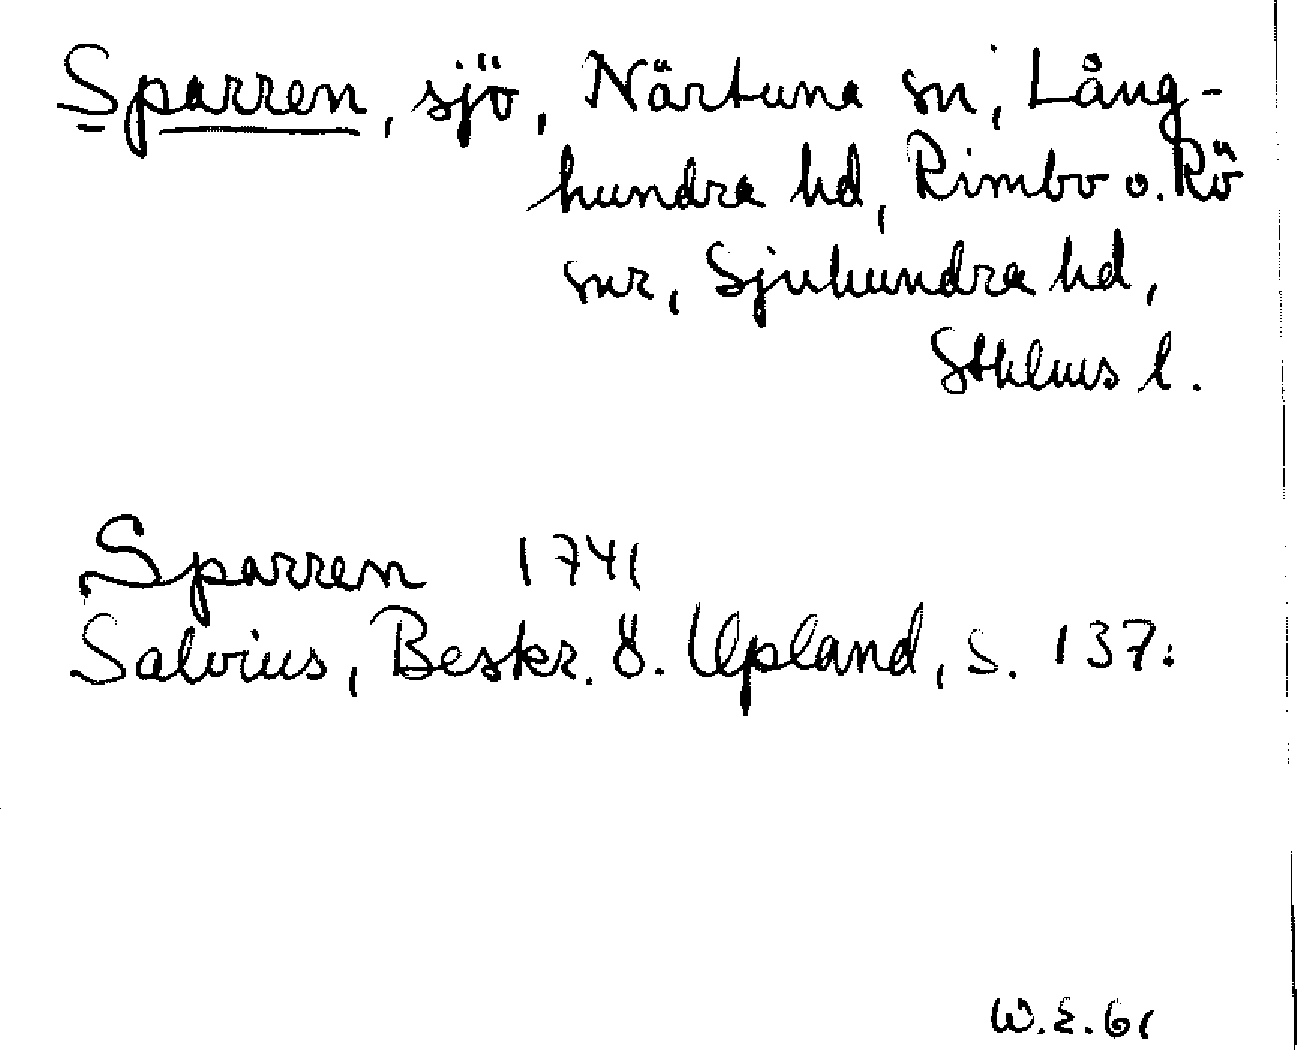 Sparren, sjö, Närtuna sn, Lång-
hundra hd, Rimbo o. Rö
snr, Sjuhundra hd,
Sthlms l.
Sparren 1741
Salvius, Beskr. ö. Upland, s. 137.
W.E. 61